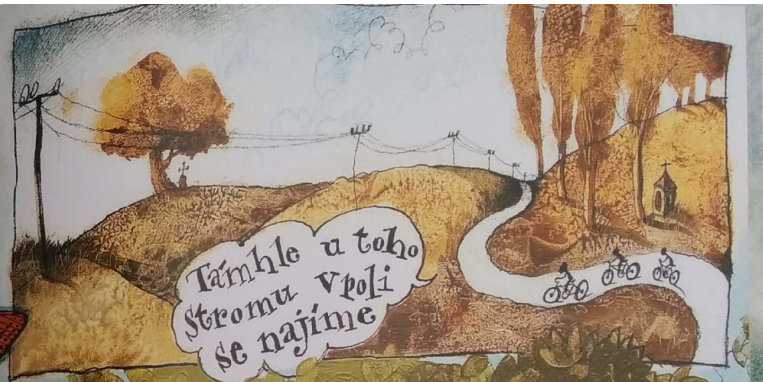 Támhle u toho
stromu v poli
se najíme